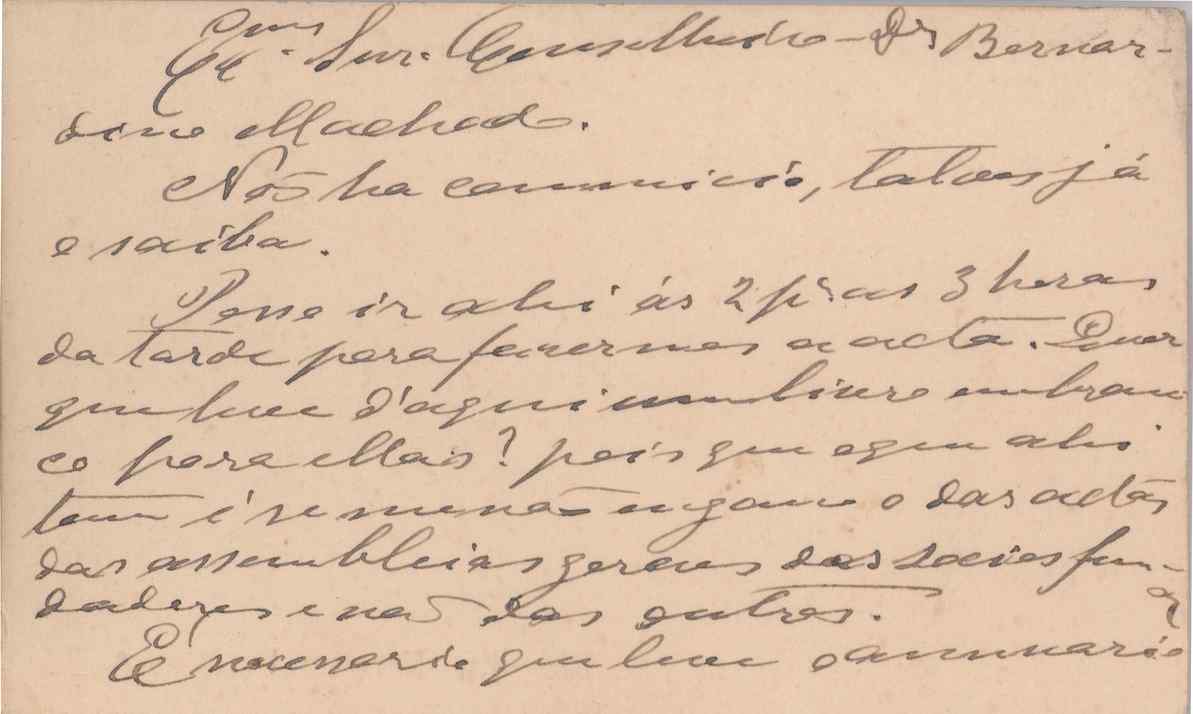 Exmo Snr. Conselheiro Dr Bernar-
dino Machado.
Não ha comicio, talvez já
o saiba.
Posso ir ahi ás 2 pa as 3 horas
da tarde para fazermos a acta. Quer
que leve d'aqui um livro em bran
co para ellas? pois que o que ahi
tem é se me não engano o das actas
das assembleias geraes dos socios fun-
dadores e não dos outros.
É necessario que leve o annuario